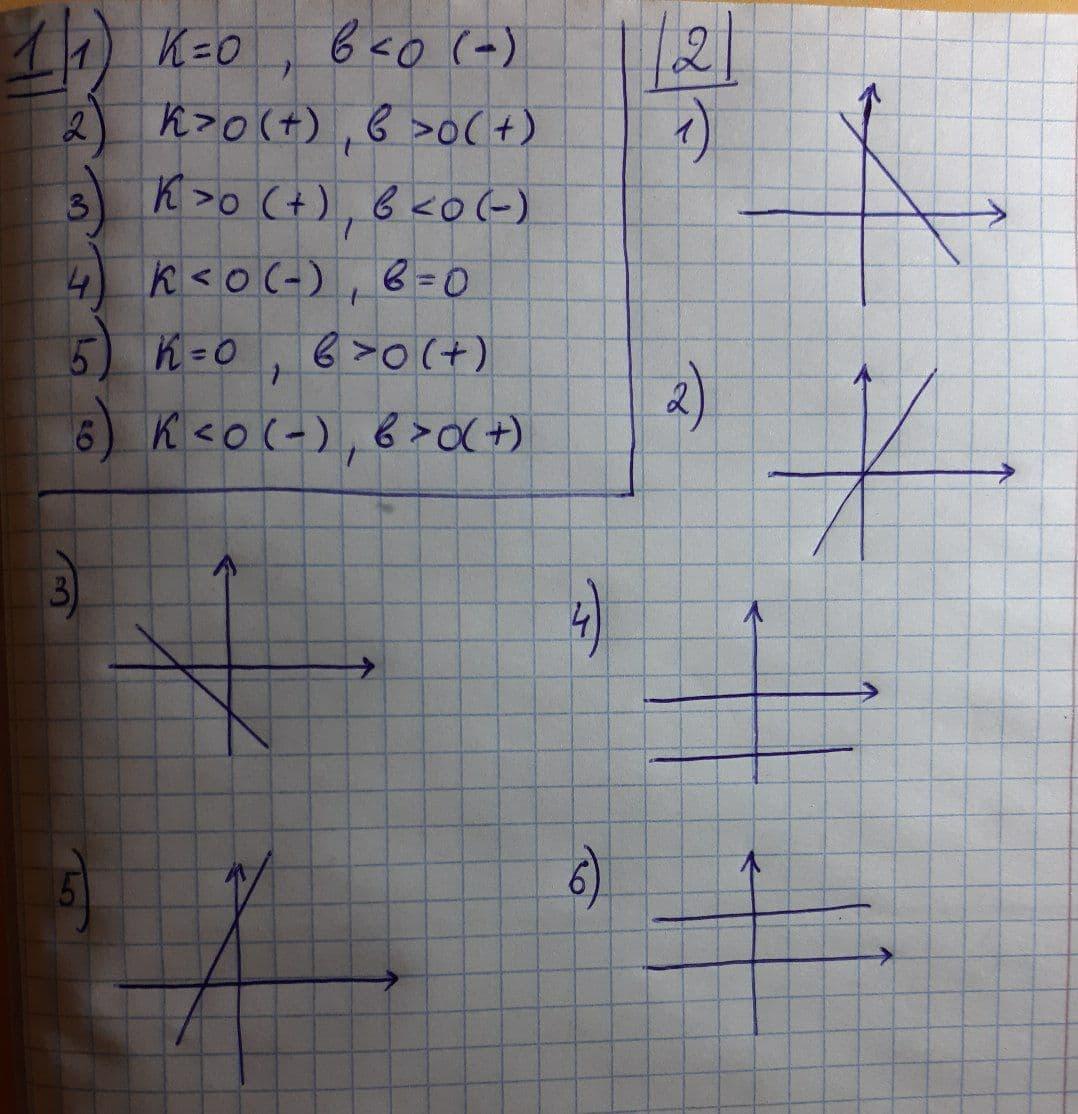 1 1) K=0 , в<0 (-)
2) K>0(+) , в>0(+)
3) K>0 (+) , в<0(-)
4) K<0(-) , в=0
5) K=0 , в>0(+)
6) K<0(-) , в>0(+)
|2|
1)
2)
3)
4)
5)
6)